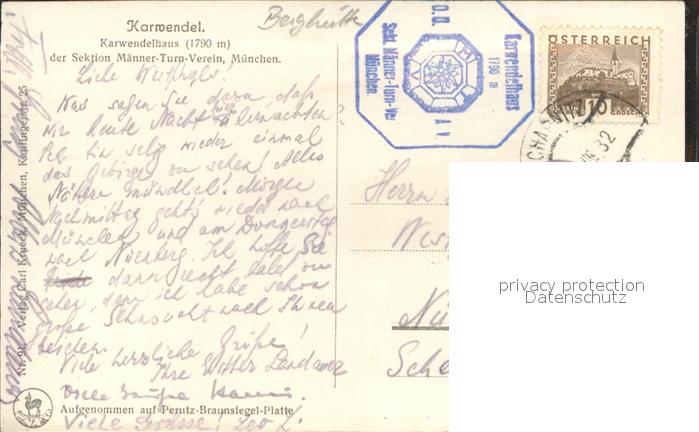 Karwendel.
Karwendelhaus (1790 m)
der Sektion Männer-Turn-Verein, München.
Berghütte
Liebe Westphals.
Was sagen Sie dazu, daß
wir heute Nacht hier übernachten?
Ich bin selig wieder einmal
das Gebirge zu sehen! Alles
Nähere mündlich! Morgen
Nachmittag geht's wieder nach
München und am Donnerstag
nach Nürnberg. Ich hoffe Sie
dann recht bald zu
sehen, denn ich habe schon
große Sehnsucht nach Ihnen
beiden.
Viele herzliche Grüße!
Ihre
Viele Grüsse! Leo L.
Aufgenommen auf Perutz-Braunsiegel-Platte
Nr. 91 Verlag Carl Krueck, München, Kaufingerstr. 25
Karwendelhaus
1790 m
Sekt. Männer-Turn-Ver
München
ÖSTERREICH
10
GROSCHEN
SCHARNITZ
32
Herrn
Wes
Nü
Sche
privacy protection
Datenschutz